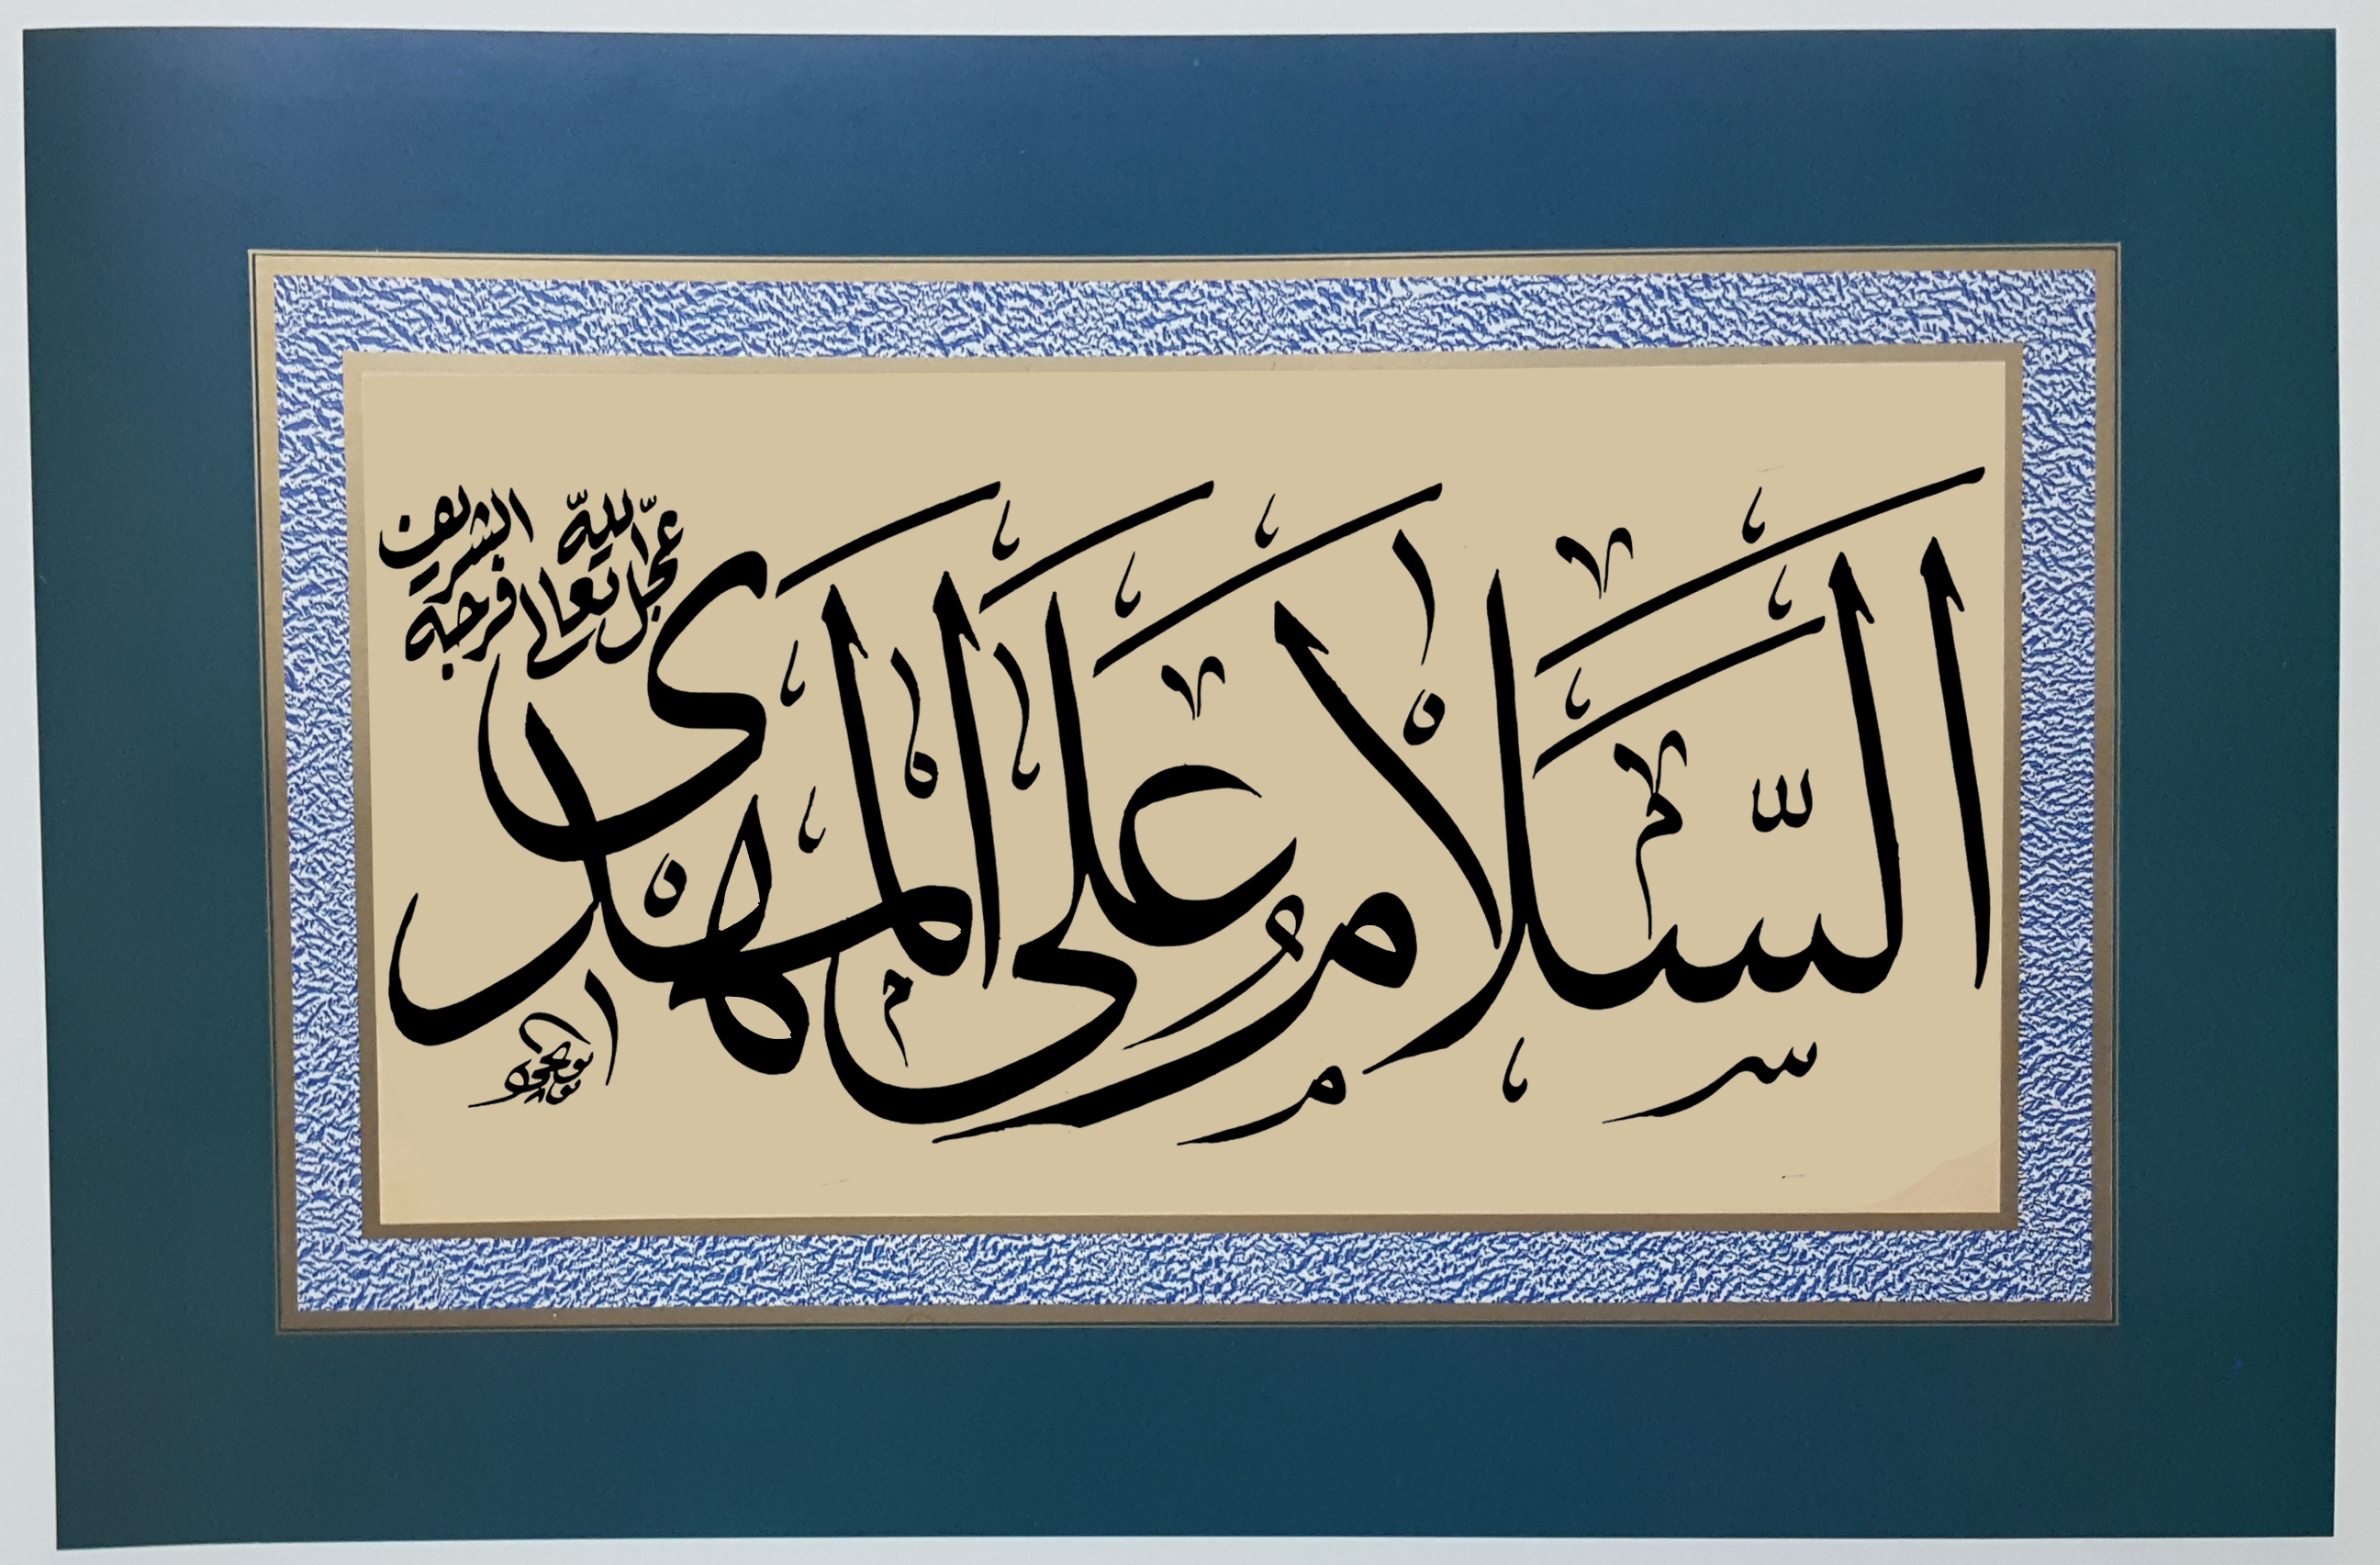 السَّلَامُ عَلَى الْمَهْدِى
عجّل اللّه تعالى فرجه الشريف